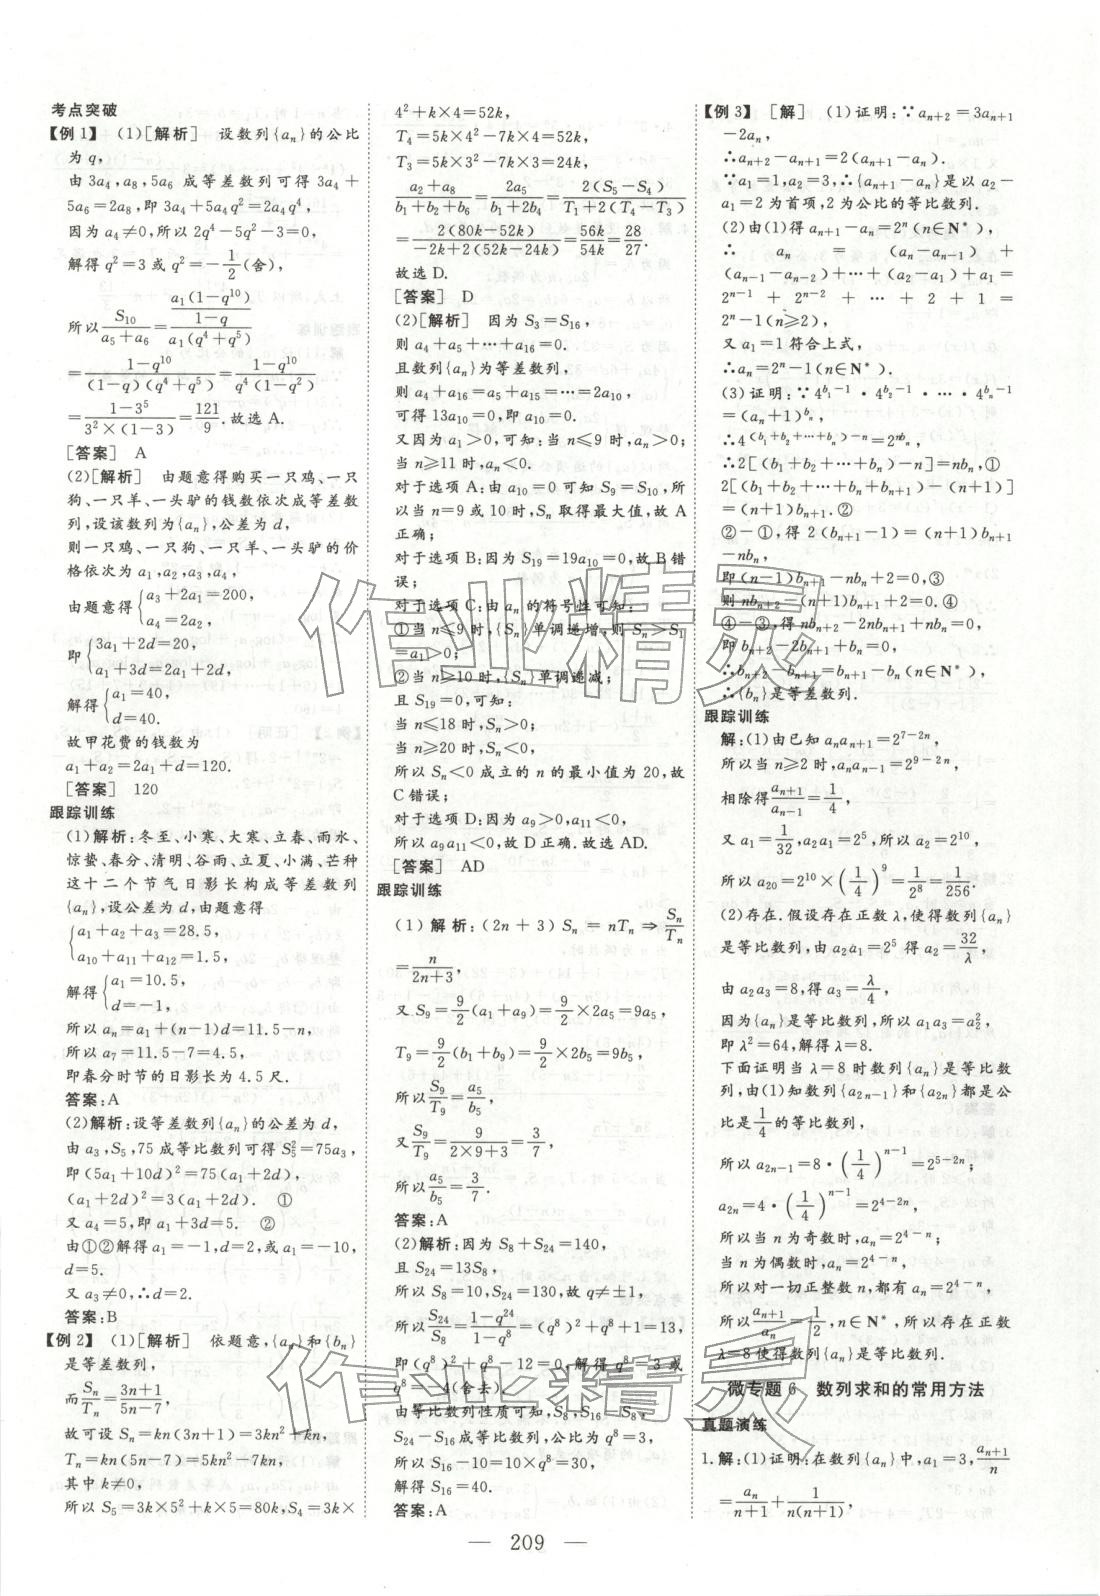 考点突破
【例1】 (1)[解析] 设数列{aₙ}的公比
为 q,
由 3a₄,a₈,5a₆ 成等差数列可得 3a₄+
5a₆=2a₈,即 3a₄+5a₄q²=2a₄q⁴,
因为 a₄≠0,所以 2q⁴-5q²-3=0,
解得 q²=3 或 q²=-1/2(舍),
所以 S₁₀/(a₅+a₆)=[a₁(1-q¹⁰)/(1-q)]/[a₁(q⁴+q⁵)]
=(1-q¹⁰)/[(1-q)(q⁴+q⁵)]=(1-q¹⁰)/[q⁴(1-q²)]
=(1-3⁵)/[3²×(1-3)]=121/9.故选 A.
[答案] A
(2)[解析] 由题意得购买一只鸡、一只
狗、一只羊、一头驴的钱数依次成等差数
列,设该数列为{aₙ},公差为 d,
则一只鸡、一只狗、一只羊、一头驴的价
格依次为 a₁,a₂,a₃,a₄,
由题意得{a₃+2a₁=200, a₄=2a₂,
即{3a₁+2d=20, a₁+3d=2a₁+2d,
解得{a₁=40, d=40.
故甲花费的钱数为
a₁+a₂=2a₁+d=120.
[答案] 120
跟踪训练
(1)解析:冬至、小寒、大寒、立春、雨水、
惊蛰、春分、清明、谷雨、立夏、小满、芒种
这十二个节气日影长构成等差数列
{aₙ},设公差为 d,由题意得
{a₁+a₂+a₃=28.5, a₁₀+a₁₁+a₁₂=1.5,
解得{a₁=10.5, d=-1,
所以 aₙ=a₁+(n-1)d=11.5-n,
所以 a₇=11.5-7=4.5,
即春分时节的日影长为 4.5 尺.
答案:A
(2)解析:设等差数列{aₙ}的公差为 d,
由 a₃,S₅,75 成等比数列可得 S₅²=75a₃,
即(5a₁+10d)²=75(a₁+2d),
(a₁+2d)²=3(a₁+2d). ①
又 a₄=5,即 a₁+3d=5. ②
由①②解得 a₁=-1,d=2,或 a₁=-10,
d=5.
又 a₃≠0,∴d=2.
答案:B
【例2】 (1)[解析] 依题意,{aₙ}和{bₙ}
是等差数列,
而 Sₙ/Tₙ=(3n+1)/(5n-7),
故可设 Sₙ=kn(3n+1)=3kn²+kn,
Tₙ=kn(5n-7)=5kn²-7kn,
其中 k≠0,
所以 S₅=3k×5²+k×5=80k,S₄=3k×
4²+k×4=52k,
T₄=5k×4²-7k×4=52k,
T₃=5k×3²-7k×3=24k,
(a₂+a₈)/(b₁+b₂+b₆)=2a₅/(b₁+2b₄)=2(S₅-S₄)/[T₁+2(T₄-T₃)]
=2(80k-52k)/[-2k+2(52k-24k)]=56k/54k=28/27.
故选 D.
[答案] D
(2)[解析] 因为 S₃=S₁₆,
则 a₄+a₅+…+a₁₆=0.
且数列{aₙ}为等差数列,
则 a₄+a₁₆=a₅+a₁₅=…=2a₁₀,
可得 13a₁₀=0,即 a₁₀=0.
又因为 a₁>0,可知:当 n≤9 时,aₙ>0;
当 n≥11 时,aₙ<0.
对于选项 A:由 a₁₀=0 可知 S₉=S₁₀,所
以当 n=9 或 10 时,Sₙ 取得最大值,故 A
正确;
对于选项 B:因为 S₁₉=19a₁₀=0,故 B 错
误;
对于选项 C:由 aₙ 的符号性可知:
①当 n≤9 时,{Sₙ}单调递增,则 Sₙ>S₁
=a₁>0;
②当 n≥10 时,{Sₙ}单调递减;
且 S₁₉=0,可知:
当 n≤18 时,Sₙ>0;
当 n≥20 时,Sₙ<0.
所以 Sₙ<0 成立的 n 的最小值为 20,故
C 错误;
对于选项 D:因为 a₉>0,a₁₁<0,
所以 a₉a₁₁<0,故 D 正确.故选 AD.
[答案] AD
跟踪训练
(1) 解析:(2n+3)Sₙ=nTₙ⇒Sₙ/Tₙ
=n/(2n+3),
又 S₉=9/2(a₁+a₉)=9/2×2a₅=9a₅,
T₉=9/2(b₁+b₉)=9/2×2b₅=9b₅,
所以 S₉/T₉=a₅/b₅,
又 S₉/T₉=9/(2×9+3)=3/7,
所以 a₅/b₅=3/7.
答案:A
(2)解析:因为 S₈+S₂₄=140,
且 S₂₄=13S₈,
所以 S₈=10,S₂₄=130,故 q≠±1,
所以 S₂₄/S₈=(1-q²⁴)/(1-q⁸)=(q⁸)²+q⁸+1=13,
即(q⁸)²+q⁸-12=0,解得 q⁸=3 或
q⁸=-4(舍去).
由等比数列性质可知,S₈,S₁₆-S₈,
S₂₄-S₁₆成等比数列,公比为 q⁸=3,
所以 S₁₆-10=10×q⁸=30,
解得 S₁₆=40.
答案:A
【例3】 [解] (1)证明:∵aₙ₊₂=3aₙ₊₁
-2aₙ,
∴aₙ₊₂-aₙ₊₁=2(aₙ₊₁-aₙ).
∵a₁=1,a₂=3,∴{aₙ₊₁-aₙ}是以 a₂-
a₁=2 为首项,2 为公比的等比数列.
(2)由(1)得 aₙ₊₁-aₙ=2ⁿ(n∈N*),
∴ aₙ = (aₙ-aₙ₋₁) +
(aₙ₋₁-aₙ₋₂)+…+(a₂-a₁)+a₁=
2ⁿ⁻¹ + 2ⁿ⁻² + … + 2 + 1 =
2ⁿ-1(n≥2),
又 a₁=1 符合上式,
∴aₙ=2ⁿ-1(n∈N*).
(3)证明:∵4^(b₁-1)·4^(b₂-1)·…·4^(bₙ-1)
=(aₙ+1)^(bₙ),
∴4^((b₁+b₂+…+bₙ)-n)=2^(nbₙ),
∴2[(b₁+b₂+…+bₙ)-n]=nbₙ,①
2[(b₁+b₂+…+bₙ+bₙ₊₁)-(n+1)]
=(n+1)bₙ₊₁.②
②-①,得 2(bₙ₊₁-1)=(n+1)bₙ₊₁-
nbₙ,
即(n-1)bₙ₊₁-nbₙ+2=0,③
则 nbₙ₊₂-(n+1)bₙ₊₁+2=0.④
④-③,得 nbₙ₊₂-2nbₙ₊₁+nbₙ=0,
即 bₙ₊₂-2bₙ₊₁+bₙ=0,
∴bₙ₊₂-bₙ₊₁=bₙ₊₁-bₙ(n∈N*),
∴{bₙ}是等差数列.
跟踪训练
解:(1)由已知 aₙaₙ₊₁=2^(7-2n),
所以当 n≥2 时,aₙaₙ₋₁=2^(9-2n),
相除得 aₙ₊₁/aₙ₋₁=1/4,
又 a₁=1/32,a₂a₁=2⁵,所以 a₂=2¹⁰,
所以 a₂₀=2¹⁰×(1/4)⁹=1/2⁸=1/256.
(2)存在.假设存在正数 λ,使得数列{aₙ}
是等比数列,由 a₂a₁=2⁵ 得 a₂=32/λ,
由 a₂a₃=8,得 a₃=λ/4,
因为{aₙ}是等比数列,所以 a₁a₃=a₂²,
即 λ²=64,解得 λ=8.
下面证明当 λ=8 时数列{aₙ}是等比数
列,由(1)知数列{a₂ₙ₋₁}和{a₂ₙ}都是公
比是 1/4 的等比数列,
所以 a₂ₙ₋₁=8·(1/4)ⁿ⁻¹=2^(5-2n);
a₂ₙ=4·(1/4)ⁿ⁻¹=2^(4-2n),
所以当 n 为奇数时,aₙ=2^(4-n),
当 n 为偶数时,aₙ=2^(4-n),
所以对一切正整数 n,都有 aₙ=2^(4-n),
所以 aₙ₊₁/aₙ=1/2,所以存在正数
λ=8 使得数列{aₙ}是等比数列.
微专题6 数列求和的常用方法
真题演练
1.解:(1)证明:在数列{aₙ}中,a₁=3,aₙ₊₁/n
=aₙ/(n+1)+1/[n(n+1)],
209
作业精灵
作业精灵